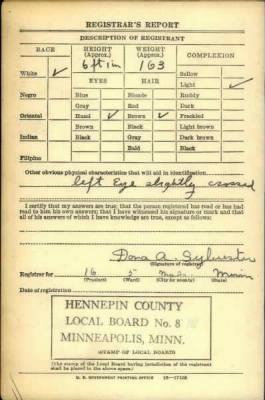 REGISTRAR'S REPORT
DESCRIPTION OF REGISTRANT
RACE HEIGHT (Approx.) WEIGHT (Approx.) COMPLEXION
6 ft 1 in 163
White ✓ Sallow
EYES HAIR Light ✓
Negro Blue Blonde Ruddy
Gray Red Dark
Oriental Hazel ✓ Brown ✓ Freckled
Brown Black Light brown
Indian Black Gray Dark brown
Bald Black
Filipino
Other obvious physical characteristics that will aid in identification
left Eye slightly crossed
I certify that my answers are true; that the person registered has read or has had
read to him his own answers; that I have witnessed his signature or mark and that
all of his answers of which I have knowledge are true, except as follows:
Dona A. Sylvester
(Signature of registrar)
Registrar for 16 5 Minn
(Precinct) (Ward) (City or county) (State)
Date of registration
HENNEPIN COUNTY
LOCAL BOARD No. 8
MINNEAPOLIS, MINN.
(STAMP OF LOCAL BOARD)
(The stamp of the Local Board having jurisdiction of the registrant
shall be placed in the above space.)
U. S. GOVERNMENT PRINTING OFFICE 16—17105